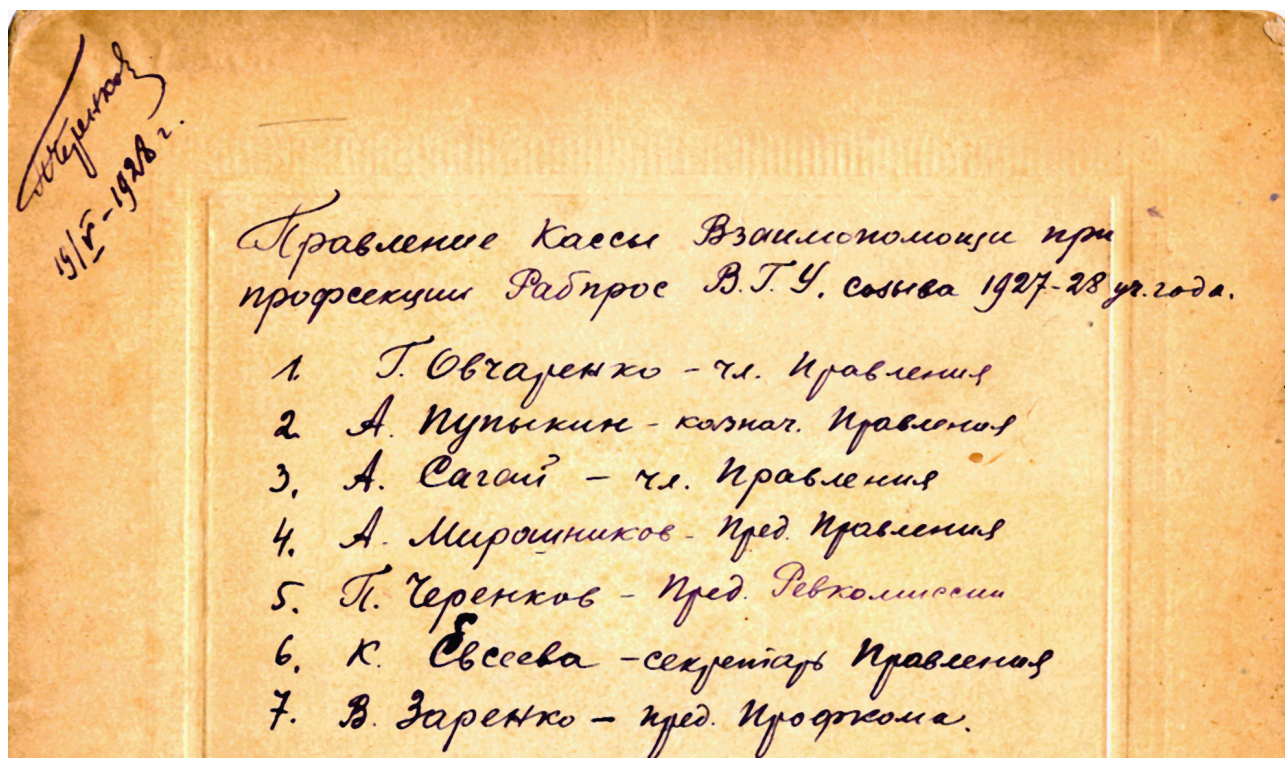 ПЧеренков
19/V-1928 г.
Правление Кассы Взаимопомощи при
профсекции Рабпрос В.Г.У. созыва 1927-28 уч. года.
1. Г. Овчаренко - чл. Правления
2. А. Пупыкин - казнач. Правления
3. А. Сагай - чл. Правления
4. А. Мирошников - Пред. Правления
5. П. Черенков - Пред. Ревкомиссии
6. К. Евсеева - секретарь Правления
7. В. Заренко - пред. Профкома.